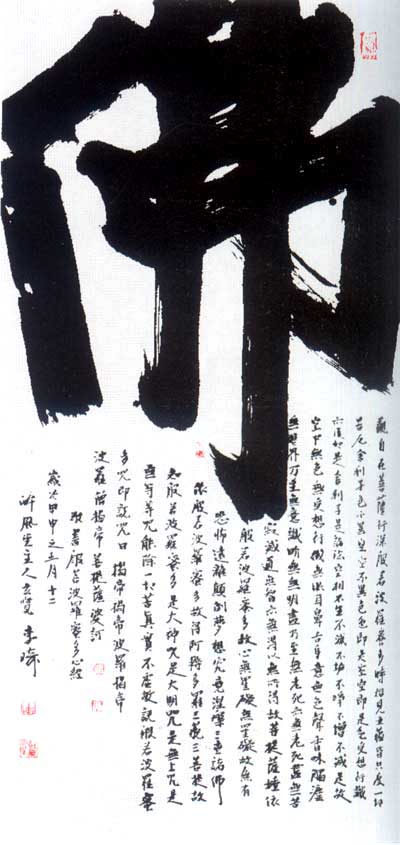 佛
觀自在菩薩行深般若波羅蜜多時照見五蘊皆空度一切
苦厄舍利子色不異空空不異色色即是空空即是色受想行識
亦復如是舍利子是諸法空相不生不滅不垢不淨不增不減是故
空中無色無受想行識無眼耳鼻舌身意無色聲香味觸法
無眼界乃至無意識無無明盡乃至無老死亦無老死盡無苦
寂滅道無智亦無得以無所得故菩提薩埵依
般若波羅蜜多故心無罣礙無罣礙故無有
恐怖遠離顛倒夢想究竟涅槃三世諸佛
依般若波羅蜜多故得阿耨多羅三藐三菩提故
知般若波羅蜜多是大神咒是大明咒是無上咒是
無等等咒能除一切苦真實不虛故說般若波羅蜜
多咒即說咒曰 揭帝揭帝波羅揭帝
波羅僧揭帝 菩提薩婆訶
敬書般若波羅蜜多心經
歲次甲申之五月十二
風堂主人 李